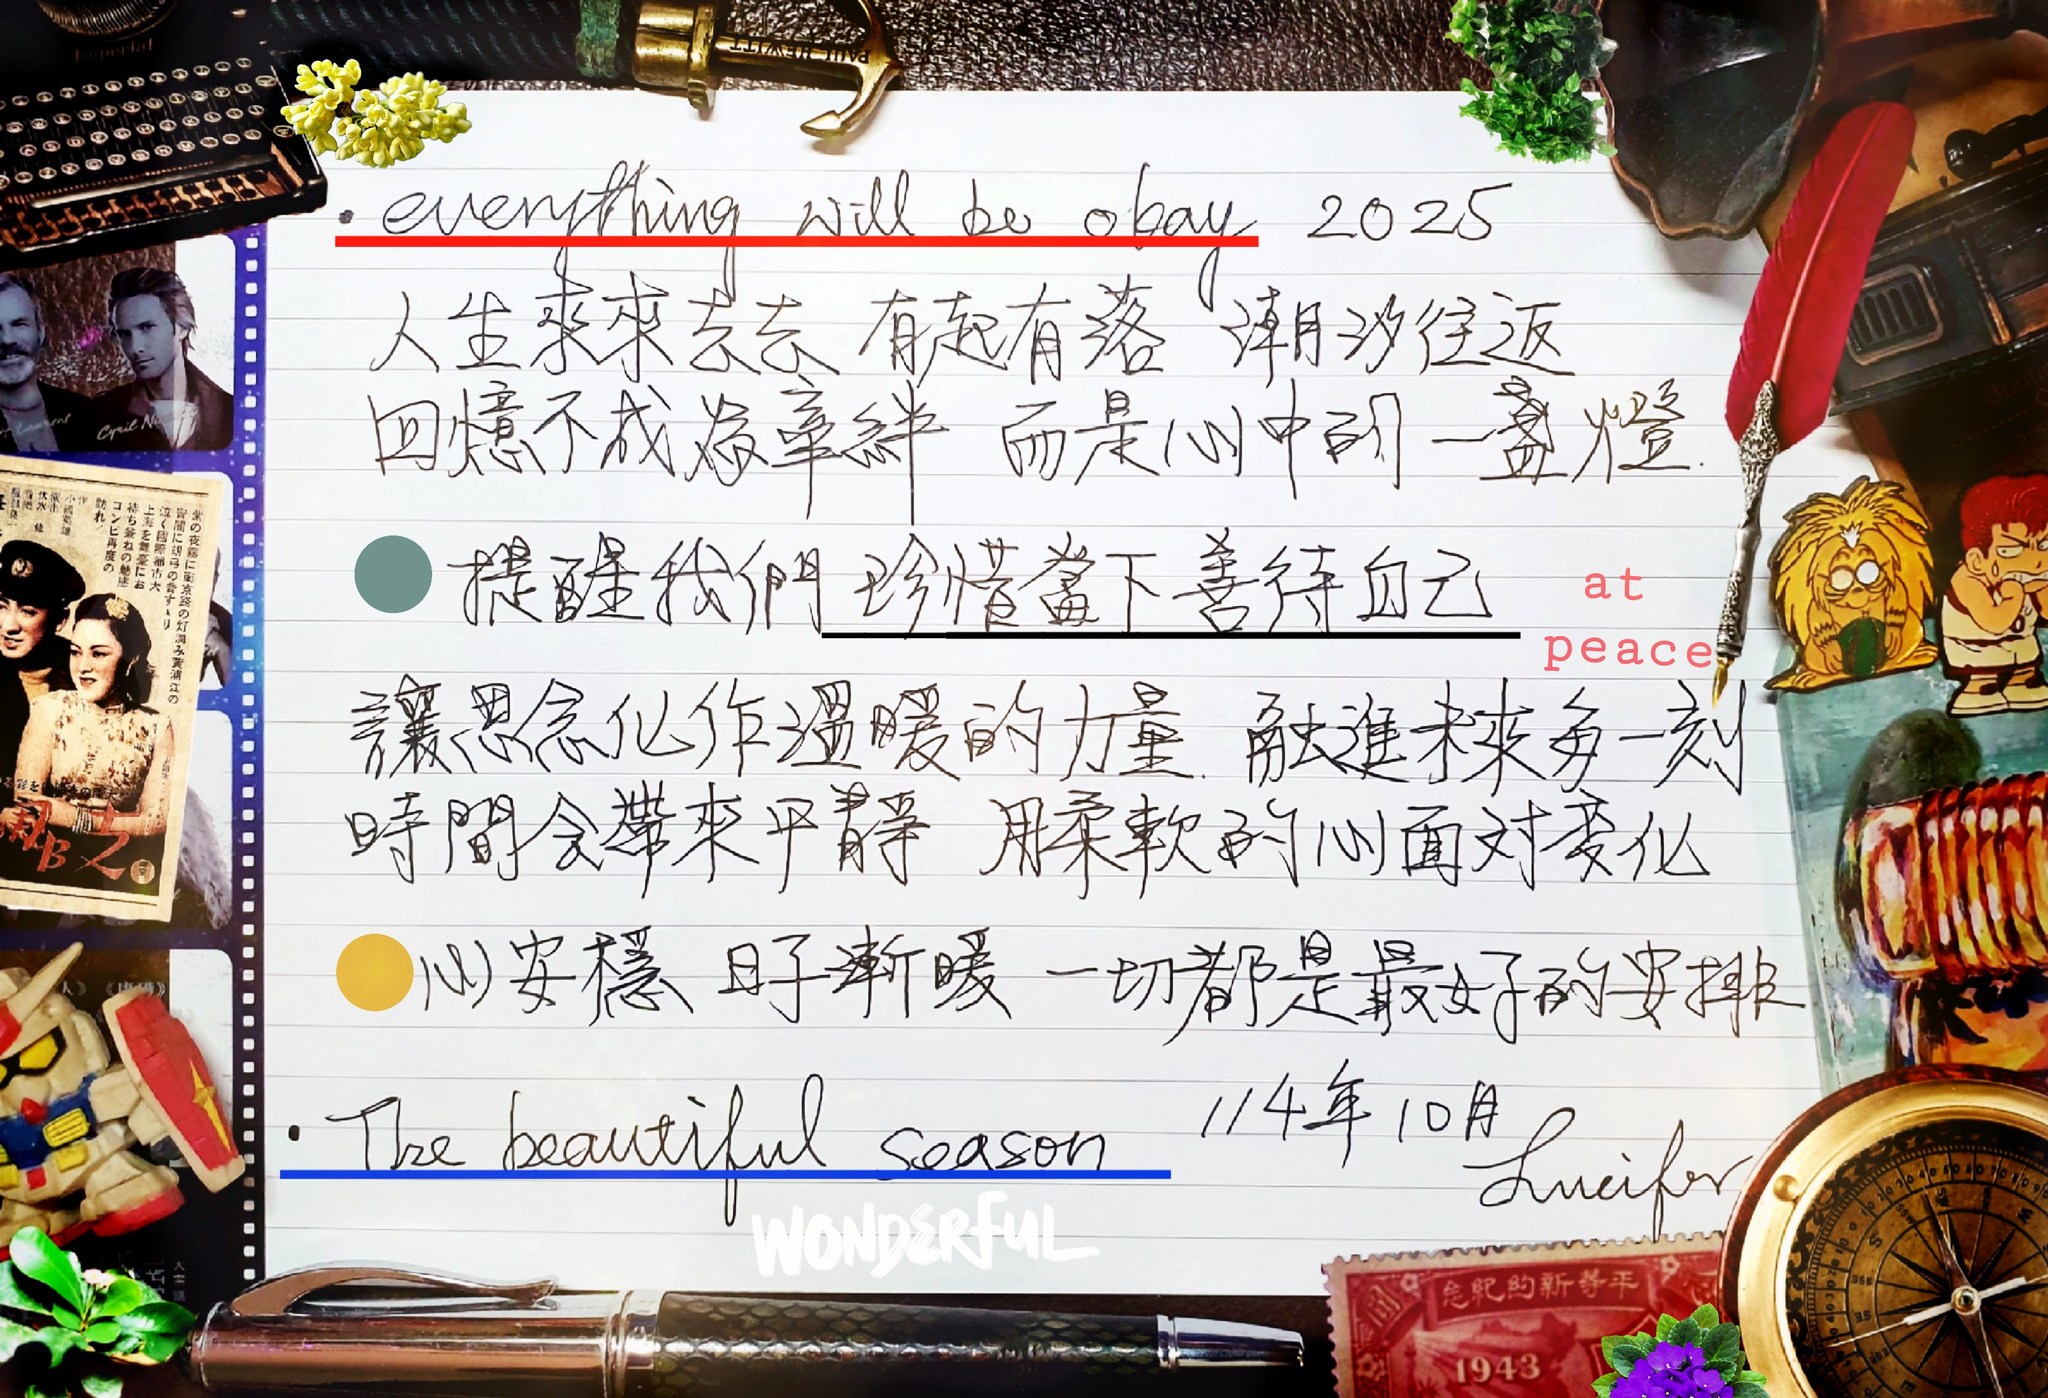 PAUL HEWITT
Imperial
• everything will be okay 2025
人生來來去去 有起有落 潮汐往返
回憶不成為牽絆 而是心中的一盞燈.
提醒我們 珍惜當下善待自己
at
peace
讓思念化作溫暖的力量. 融進未來每一刻
時間会帶來平靜 用柔軟的心面對変化
心安穩 日子漸暖 一切都是最好的安排
• The beautiful season 114年10月
Lucifer
WONDERFUL
平等新約紀念
1943